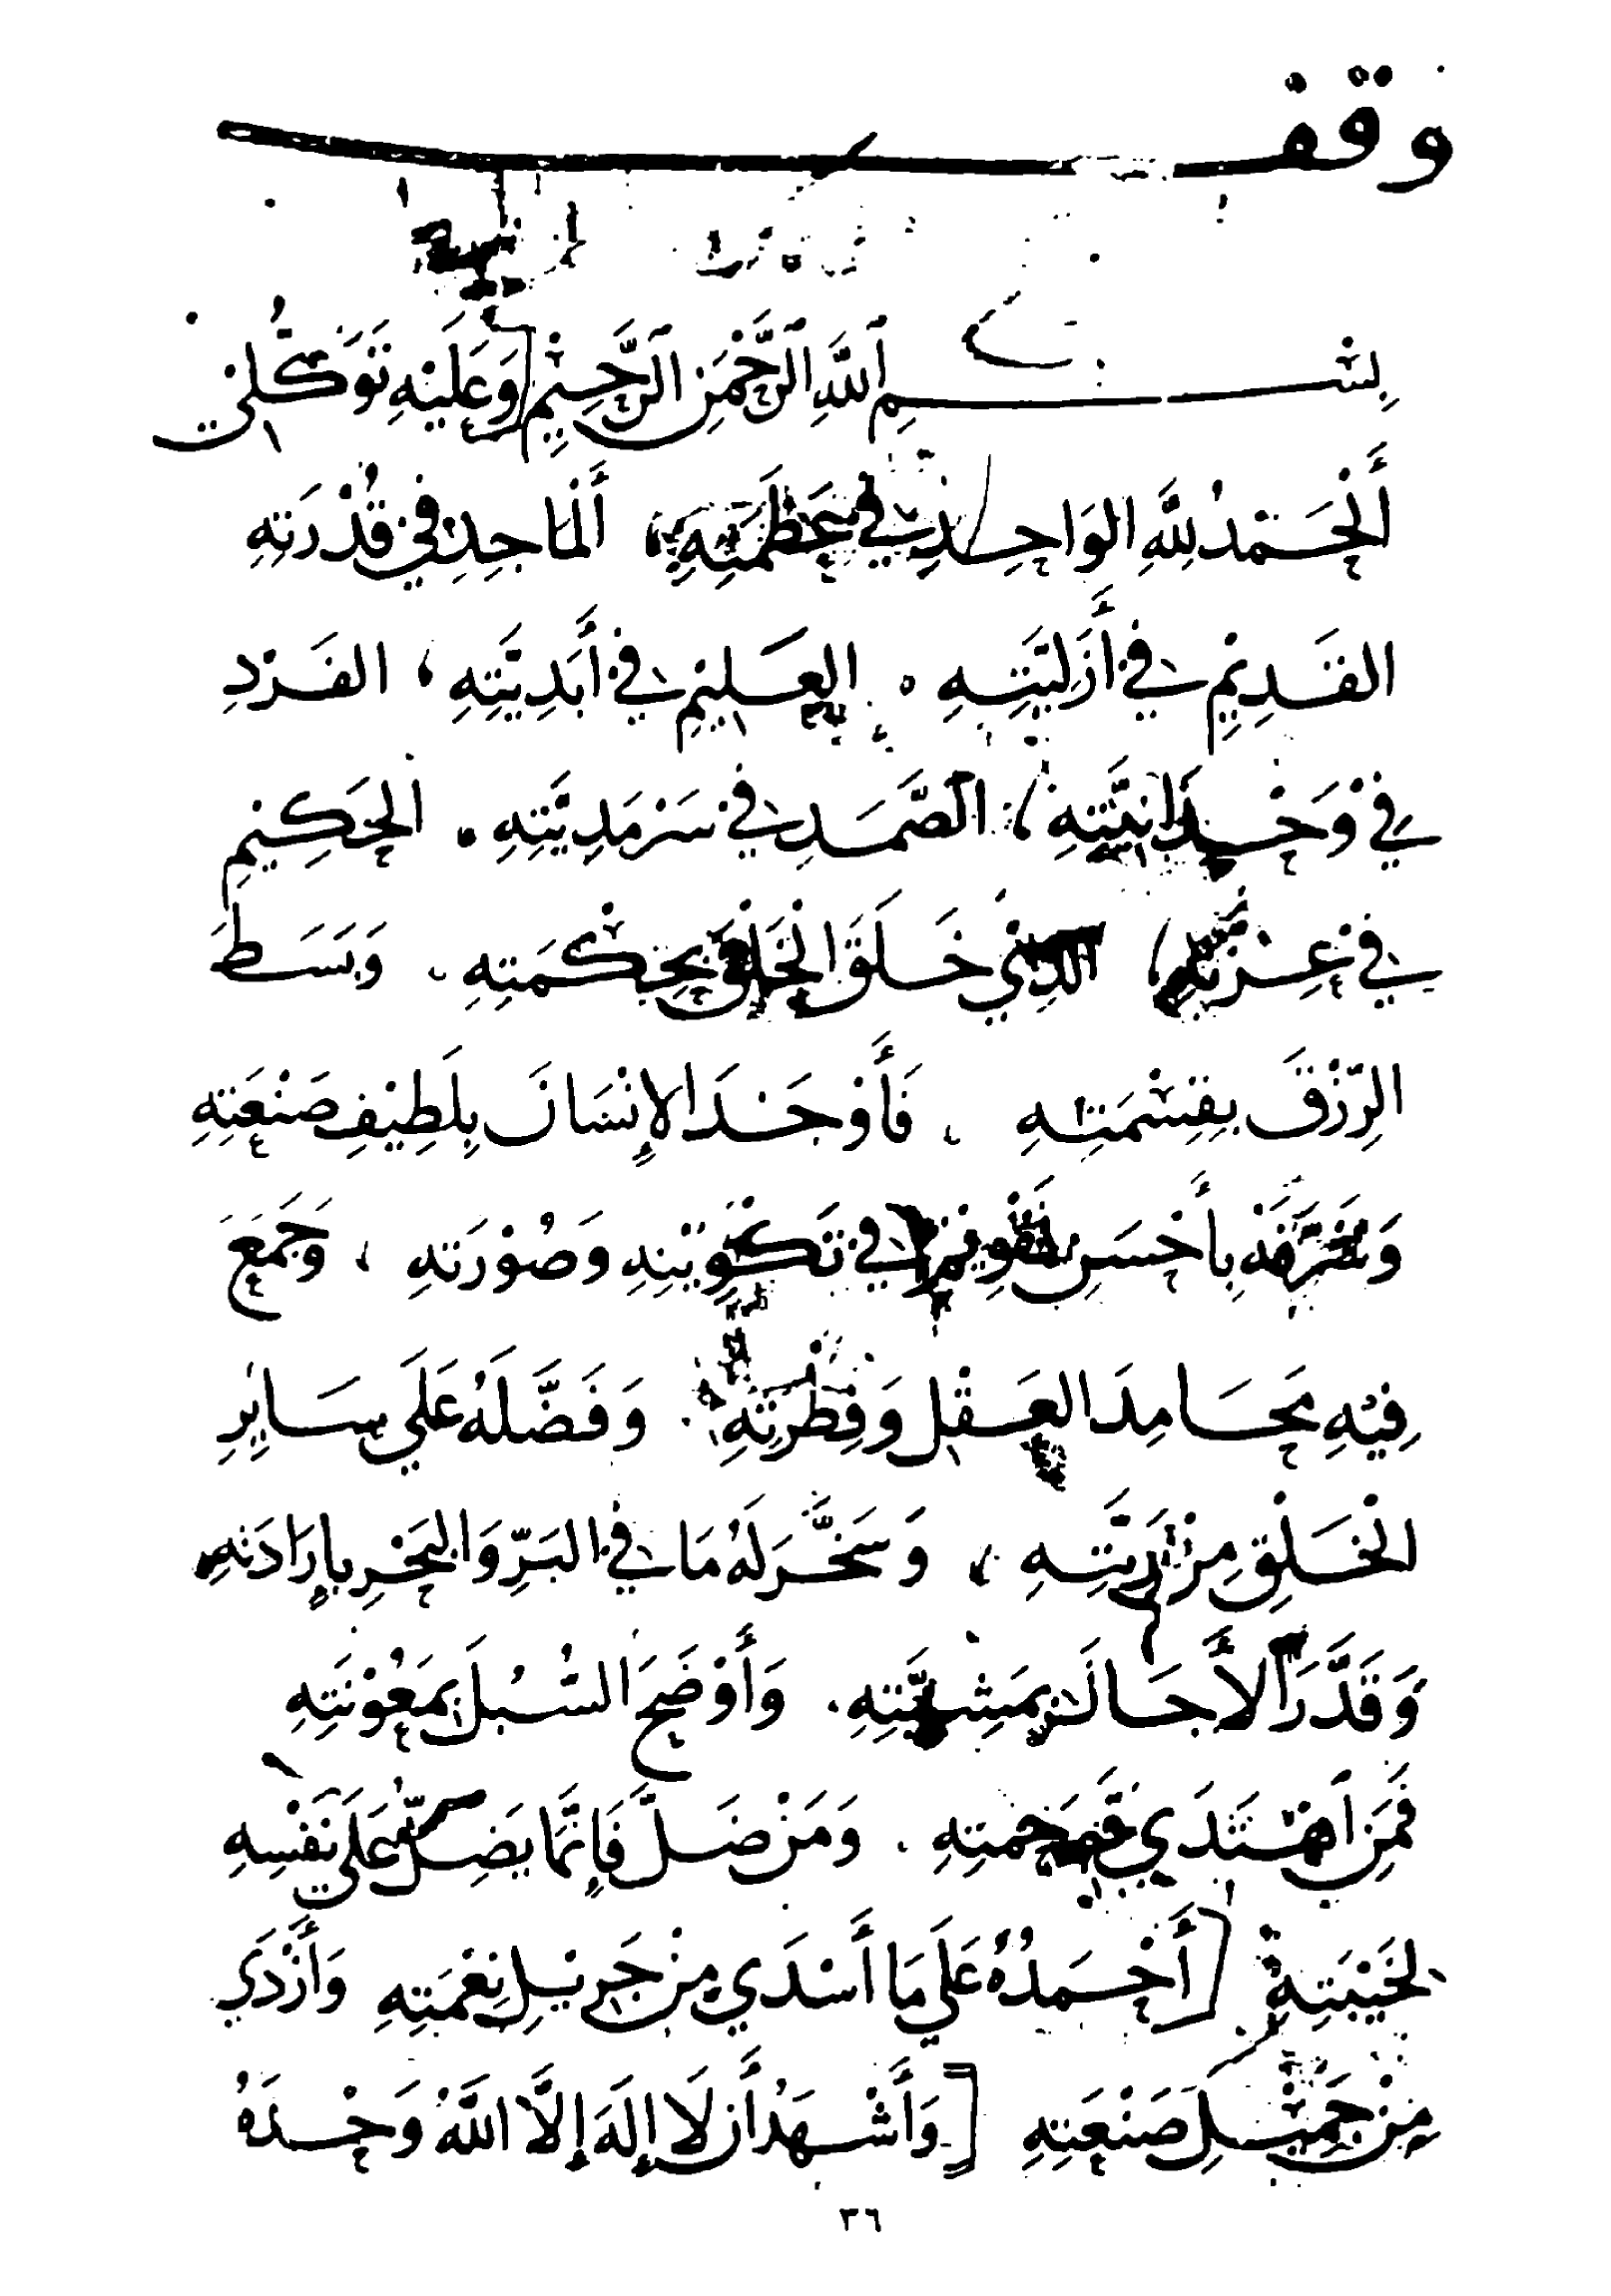 وقف
بِسْمِ ٱللَّهِ ٱلرَّحْمَنِ ٱلرَّحِيْمِ [وَعَلَيْهِ تَوَكُّلِي
أَلْحَمْدُ لِلَّهِ الوَاحِدِ فِي عَظَمَتِهِ، أَلْمَاجِدِ فِي قُدْرَتِهِ
القَدِيْمِ فِي أَزَلِيَّتِهِ. العَلِيْمِ فِي أَبَدِيَّتِهِ، الفَرْدِ
فِي وَحْدَانِيَّتِهِ، الصَّمَدِ فِي سَرْمَدِيَّتِهِ. الحَكِيْمِ
فِي عِزَّتِهِ، الَّذِيْ خَلَقَ الْخَلْقَ بِحِكْمَتِهِ. وَبَسَطَ
الرِّزْقَ بِقِسْمَتِهِ، فَأَوْجَدَ الإِنْسَانَ بِلَطِيْفِ صَنْعَتِهِ
وَشَرَّفَهُ بِأَحْسَنِ تَقْوِيْمٍ فِي تَكْوِيْنِهِ وَصُوْرَتِهِ، وَجَمَعَ
فِيْهِ مَحَامِدَ العَقْلِ وَفِطْرَتِهِ. وَفَضَّلَهُ عَلَي سَايِرِ
الْخَلْقِ مِنْ بَرِيَّتِهِ، وَسَخَّرَ لَهُ مَا فِي البَرِّ وَالبَحْرِ بِإِرَادَتِهِ
وَقَدَّرَ الأَجَالَ بِمَشِيَّتِهِ. وَأَوْضَحَ السُّبُلَ بِمَعُوْنَتِهِ
فَمَنِ ٱهْتَدَي فَبِرَحْمَتِهِ. وَمَنْ ضَلَّ فَإِنَّمَا يَضِلُّ عَلَي نَفْسِهِ
لِخَيْبَتِهِ [أَحْمَدُهُ عَلَي مَا أَسْدَي مِنْ جَزِيْلِ نِعْمَتِهِ وَأَزْدَي
مِنْ جَمِيْلِ صَنْعَتِهِ [وَأَشْهَدُ أَن لَا إِلَهَ إِلَّا اللَّهُ وَحْدَهُ
٣٦